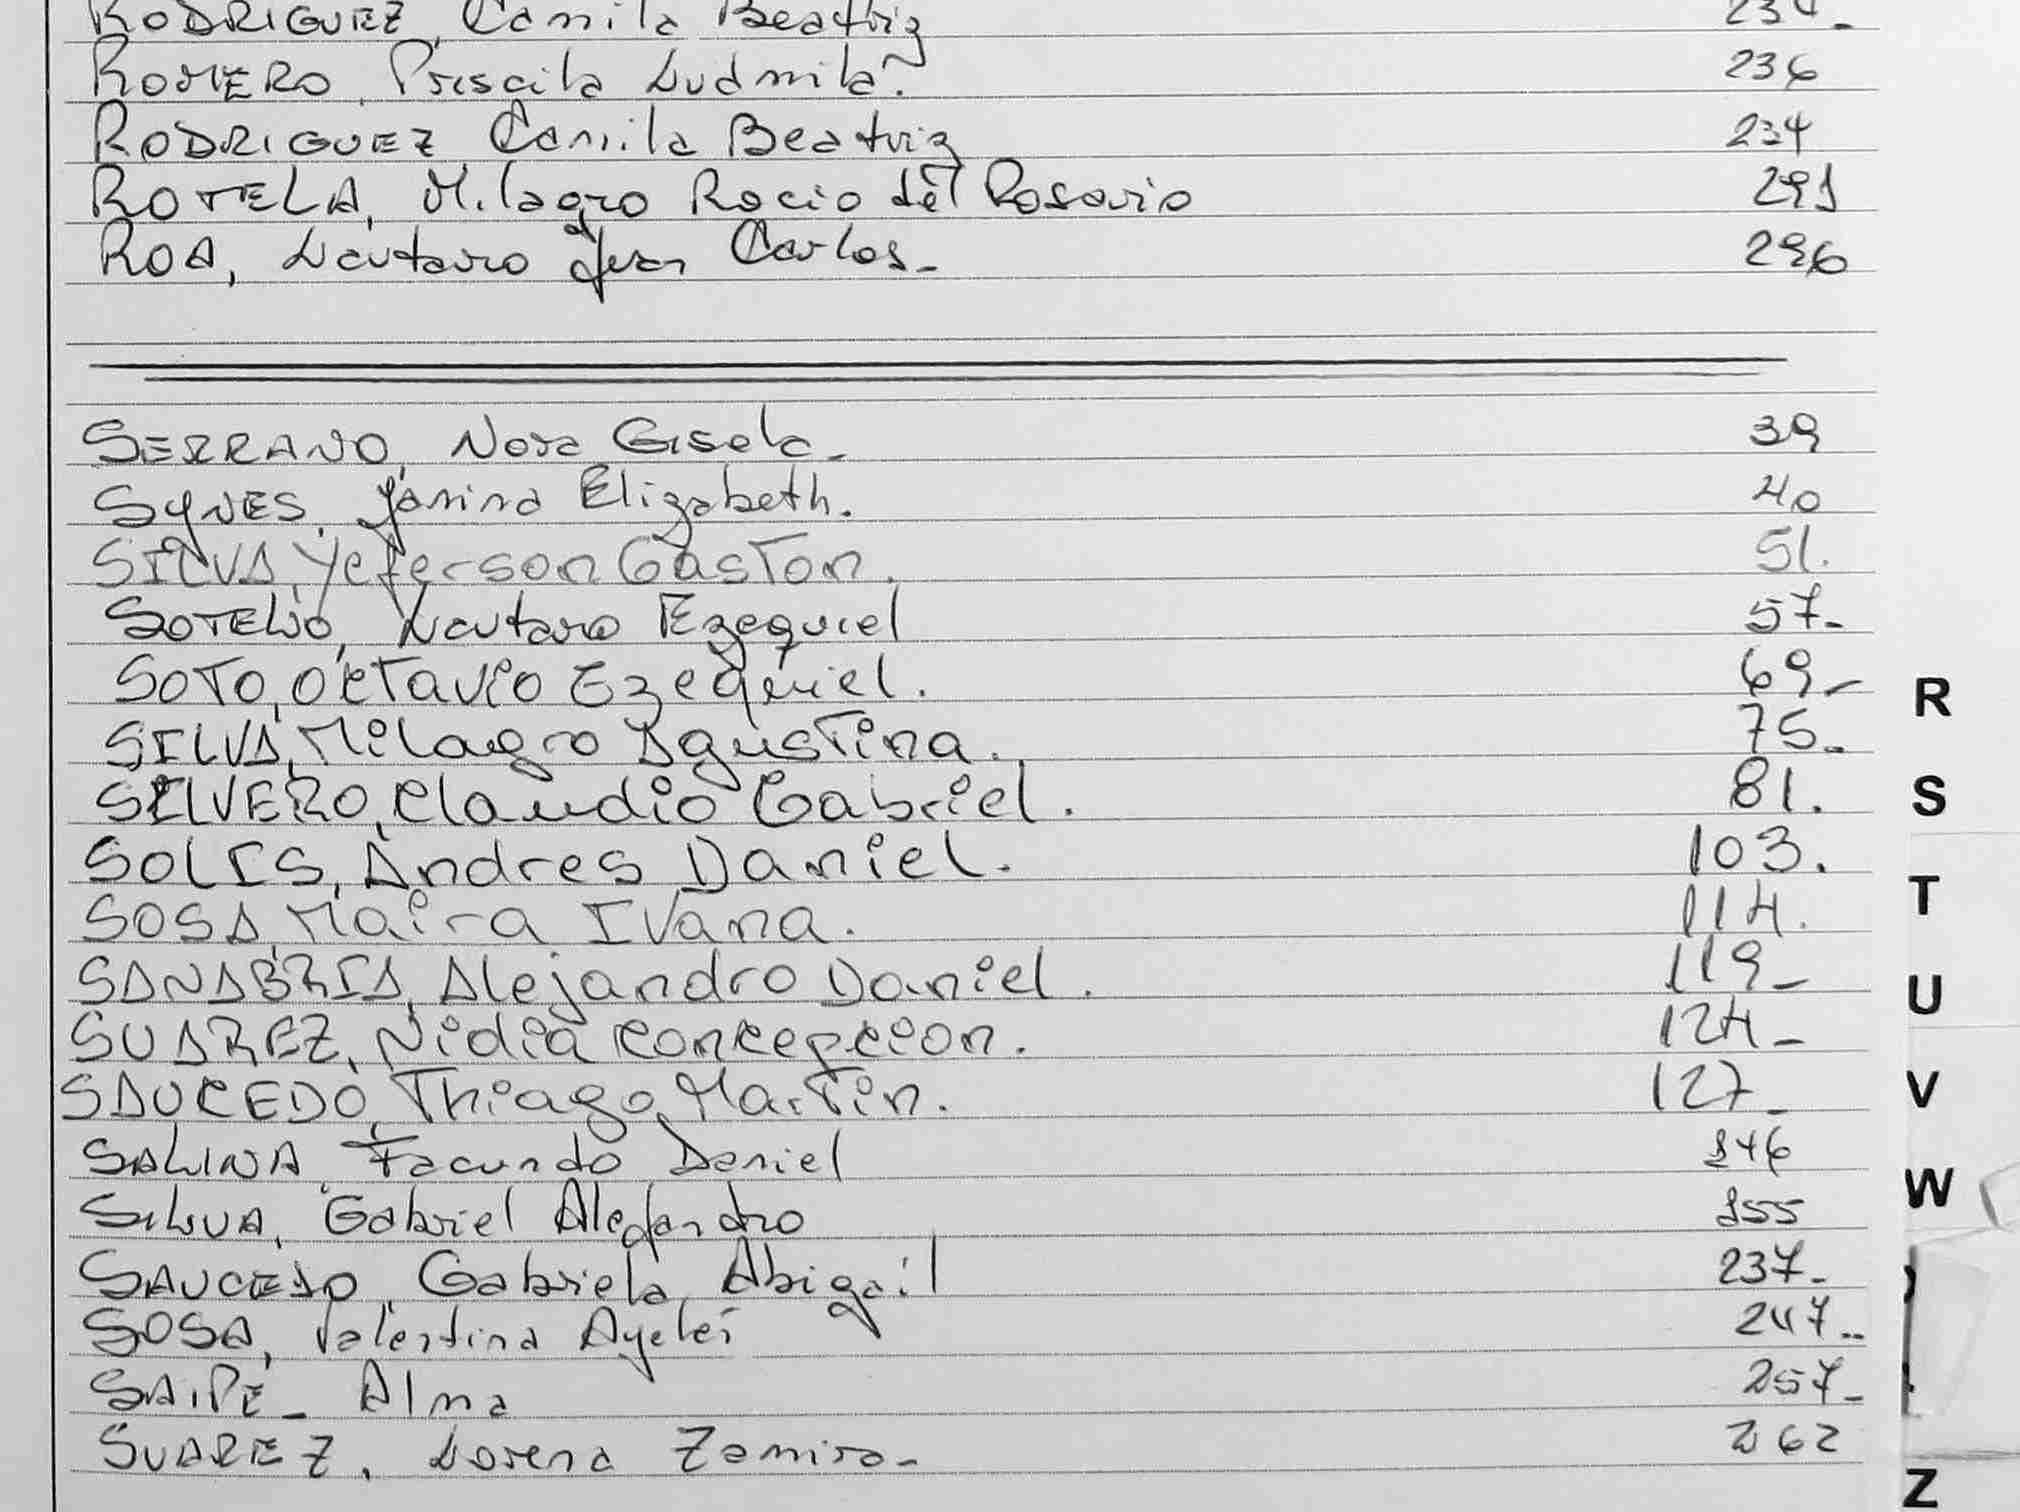 RODRIGUEZ, Camila Beatriz 234-
ROMERO, Priscila Ludmila. 236
RODRIGUEZ Camila Beatriz 234
ROTELA, Milagro Rocio del Rosario 291
ROA, Lautaro Juan Carlos- 296
SERRANO, Nora Gisela- 39
SYNES, Yanina Elizabeth. 40
SILVA, Yeferson Gaston. 51.
SOTELO, Lautaro Ezequiel 57-
SOTO, Octavio Ezequiel. 69-
R
SILVA, Milagro Agustina. 75-
SILVERO, Claudio Gabriel. 81.
S
SOLIS, Andres Daniel. 103.
T
SOSA, Maira Ivana. 114.
SANABRIA, Alejandro Daniel. 119-
U
SUAREZ, Nidia Concepcion. 124-
SAUCEDO, Thiago Martin. 127-
V
SALINA, Facundo Daniel 146
W
SILVA, Gabriel Alejandro 155
SAUCEDO, Gabriela Abigail 237-
SOSA, Valentina Ayelei 247..
SAIPE- Alma 257-
SUAREZ, Lorena Zamira- 262
Z